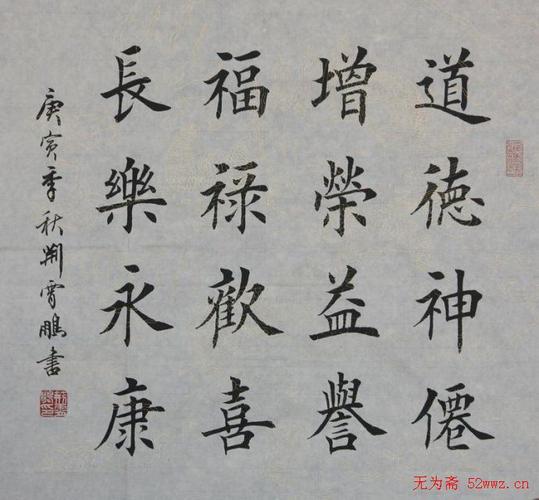 道德神僊
增榮益譽
福祿歡喜
長樂永康
庚寅季秋荆霄鵬書
无为斋 52wwz.cn